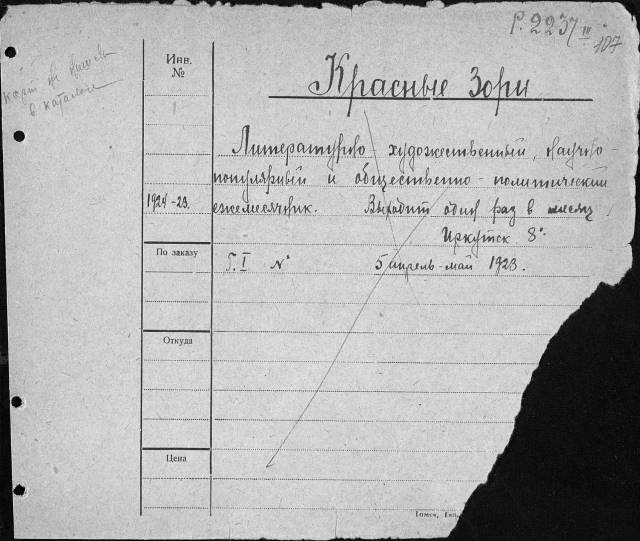 Р. 2237 III
107
карт не
в каталог
Инв.
№
Красные Зори
Литературно-художественный, научно-
популярный и общественно-политический
1924-23. ежемесячник. Выходит один раз в месяц.
Иркутск 8°
По заказу
Г. I № 5 апрель-май 1923.
Откуда
Цена
Томск, Тип.